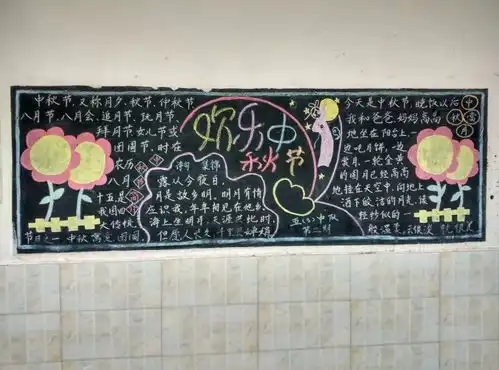 中秋节,又称月夕、秋节、仲秋节、
八月节、八月会、追月节、玩月节、
拜月节、女儿节或
团圆节,时在
农历
八月
十五,是
我国四
大传统
节日之一 中秋寓意 团圆
中秋
欢乐中
秋节
露从今夜白,
月是故乡明。明月有情
应识我,年年相见在他乡。
海上生明月,天涯共此时。
但愿人长久,千里共婵娟
中队
第二期
今天是中秋节,晚饭以后
我和爸爸妈妈高高
地坐在阳台上,一
边吃月饼,一边
赏月。一轮金黄
的圆月已经高高
地挂在天空中,向地上
洒下皎洁的月光,该
轻纱似的一
中
秋
赏
月